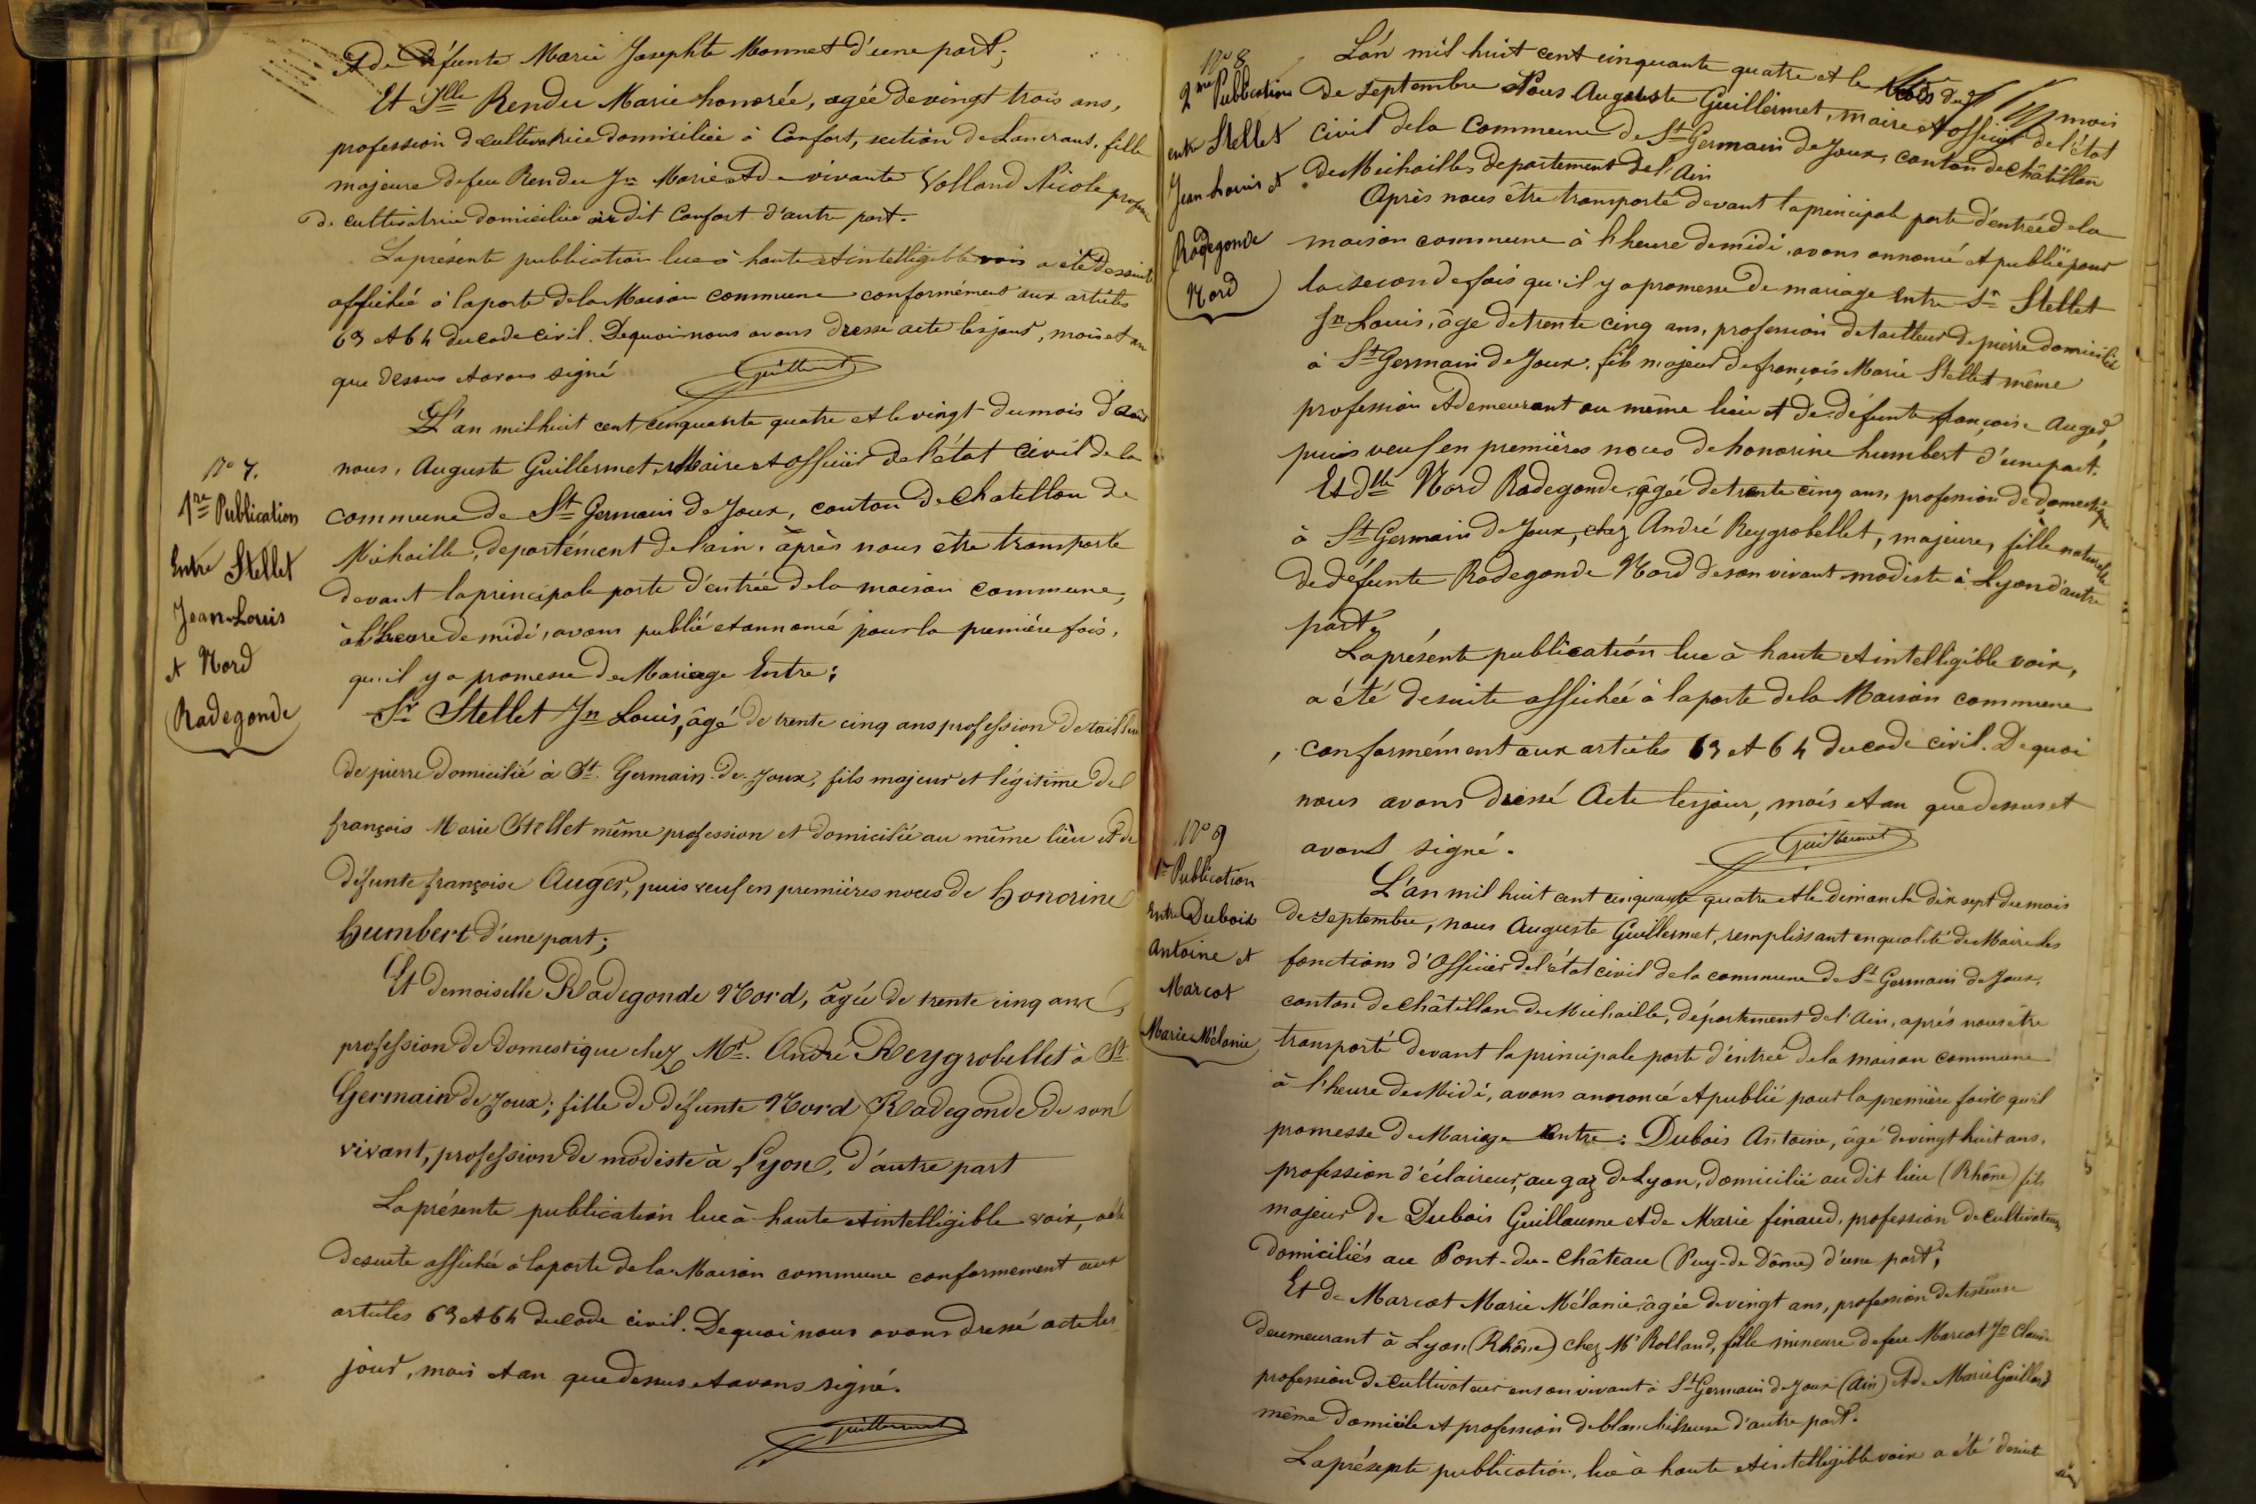 Et de défunte Marie Josephte Monnet d'une part;
Et Dlle Rendu Marie honorée, agée de vingt trois ans,
profession de cultivatrice domiciliée à Confort, section de Lancrans, fille
majeure de feu Rendu Jn Marie Et de vivante Volland Nicole profession
de cultivatrice domiciliée au dit Confort d'autre part.
La présente publication lue à haute et intelligible voix a été de suite
affichée à la porte de la Maison commune conformément aux articles
63 et 64 du code civil. De quoi nous avons dressé acte les jour, mois et an
que dessus et avons signé
Guillermet
N° 7.
1re Publication
Entre Stellet
Jean-Louis
et Nord
Radegonde
L'an mil huit cent cinquante quatre et le vingt du mois d'août
nous, Auguste Guillermet, Maire et officier de l'état civil de la
commune de St Germain de Joux, canton de Chatillon de
Michaille, département de l'ain, après nous être transporté
devant la principale porte d'entrée de la maison commune,
à l'heure de midi, avons publié et annoncé pour la première fois,
qu'il y a promesse de Mariage Entre;
Sr Stellet Jn Louis, âgé de trente cinq ans profession de tailleur
de pierre domicilié à St. Germain-de-Joux, fils majeur et légitime de
françois Marie Stellet même profession et domicilié au même lieu et de
défunte françoise Auger, puis veuf en premières noces de honorine
humbert d'une part;
Et demoiselle Radegonde Nord, âgée de trente cinq ans,
profession de domestique chez Mr. André Reygrobellet à St.
Germain de Joux; fille de défunte Nord Radegonde de son
vivant, profession de modiste à Lyon, d'autre part
La présente publication lue à haute et intelligible voix, a été
de suite affichée à la porte de la Maison commune conformement aux
articles 63 et 64 du code civil. De quoi nous avons dressé acte les
jour, mois et an que dessus et avons signé.
Guillermet
N° 8
2me Publication
entre Stellet
Jean Louis et
Radegonde
Nord
L'an mil huit cent cinquante quatre et le trois du mois
de septembre Nous Auguste Guillermet, maire et officier de l'état
civil de la Commune de St Germain de Joux, canton de Châtillon
de Michaille, departement de l'Ain
Après nous être transporté devant la principale porte d'entrée de la
maison commune à l'heure de midi, avons annoncé et publié pour
la seconde fois qu'il y a promesse de mariage entre Sr Stellet
Jn Louis, âgé de trente cinq ans, profession de tailleur de pierre domicilié
à St Germain de Joux, fils majeur de françois Marie Stellet même
profession et demeurant au même lieu et de défunte françoise Auger,
puis veuf en premières noces de honorine humbert d'une part.
Et dlle Nord Radegonde, âgée de trente cinq ans, profession de domestique
à St Germain de Joux, chez André Reygrobellet, majeure, fille naturelle
de défunte Radegonde Nord de son vivant modiste à Lyon d'autre
part.
La présente publication lue à haute et intelligible voix,
a été de suite affichée à la porte de la Maison commune
conformément aux articles 63 et 64 du code civil. De quoi
nous avons dressé Acte les jour, mois et an que dessus et
avons signé.
Guillermet
N° 9
1re Publication
Entre Dubois
Antoine et
Marcot
Marie Mélanie
L'an mil huit cent cinquante quatre et le dimanche dix sept du mois
de septembre, nous Auguste Guillermet, remplissant en qualité de Maire les
fonctions d'Officier de l'état civil de la commune de St Germain de Joux,
canton de Châtillon de Michaille, département de l'Ain, après nous être
transporté devant la principale porte d'entrée de la maison commune
à l'heure de Midi, avons annoncé et publié pour la première fois qu'il
promesse de Mariage Entre: Dubois Antoine, âgé de vingt huit ans,
profession d'éclaireur, au gaz de Lyon, domicilié au dit lieu (Rhône) fils
majeur de Dubois Guillaume et de Marie finaud, profession de cultivateurs
domiciliés au Pont-du-Château (Puy-de Dôme) d'une part;
Et de Marcot Marie Mélanie, âgée de vingt ans, profession de tisseuse
deumeurant à Lyon (Rhône) chez Mr Rolland, fille mineure de feu Marcot Jn Claude
profession de cultivateur en son vivant à St Germain de Joux (Ain) et de Marie Gaillard
même domicile et profession de blanchisseuse d'autre part.
La présente publication, lue à haute et intelligible voix a été de suite